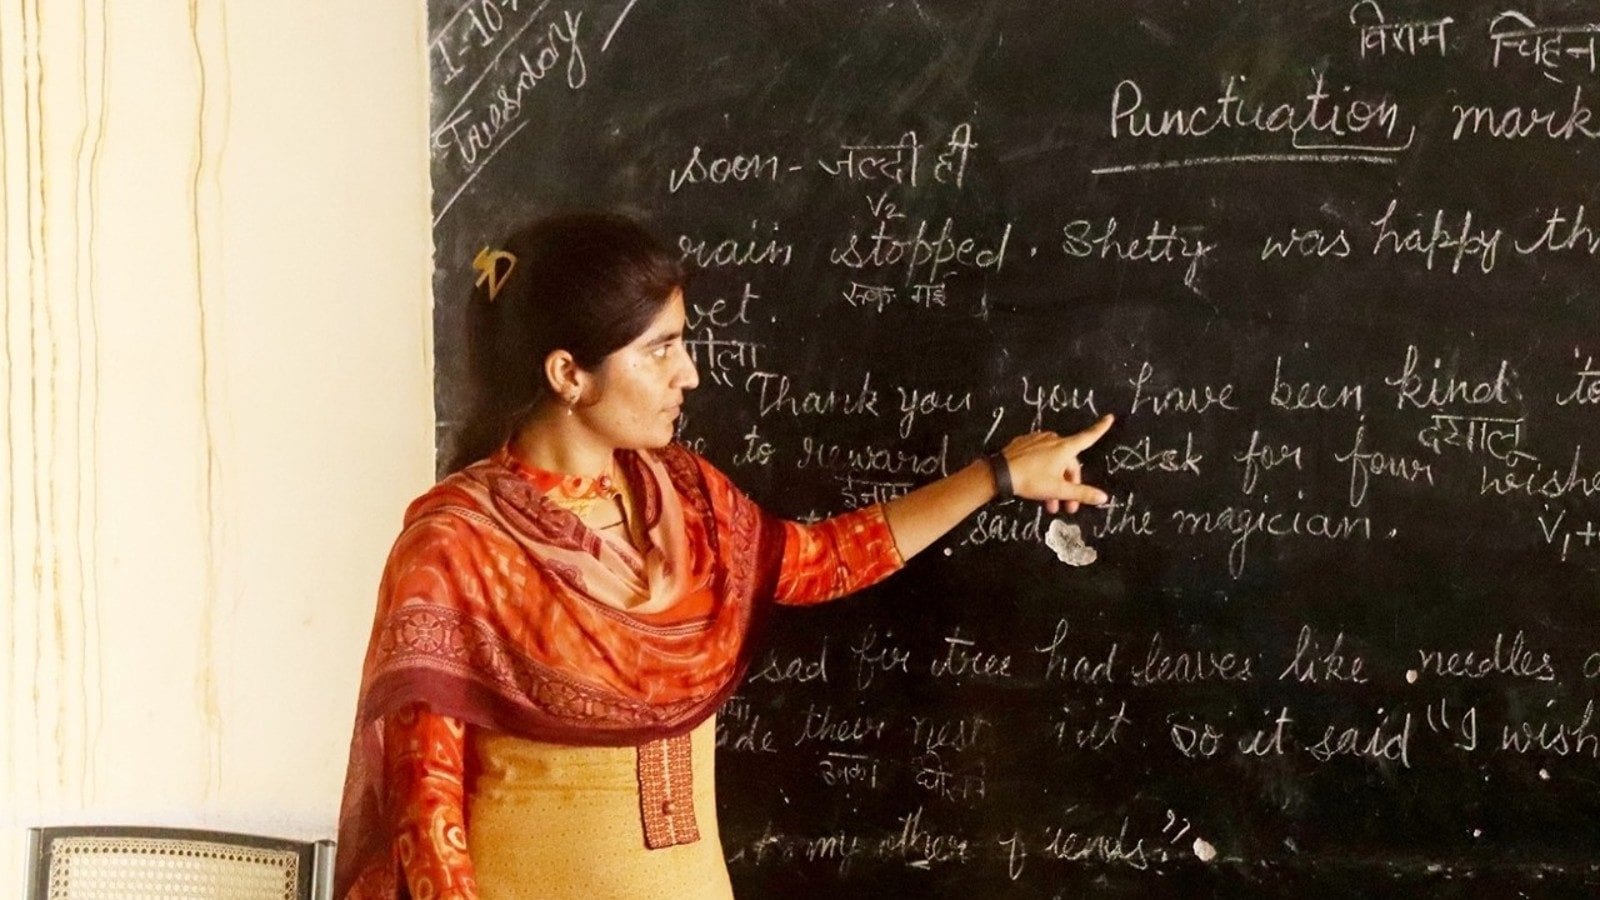 1-10-
Tuesday
विराम चिह्न
Punctuation, mark
soon - जल्दी ही
V2
rain stopped. Shetty was happy th
रूक गई
wet.
गीला
"Thank you, you have been kind to
दयालु
to reward Ask for four wishe
ईनाम
said the magician. V1+
sad fir tree had leaves like needles
their nest it. So it said "I wish
उनका
my other friends."